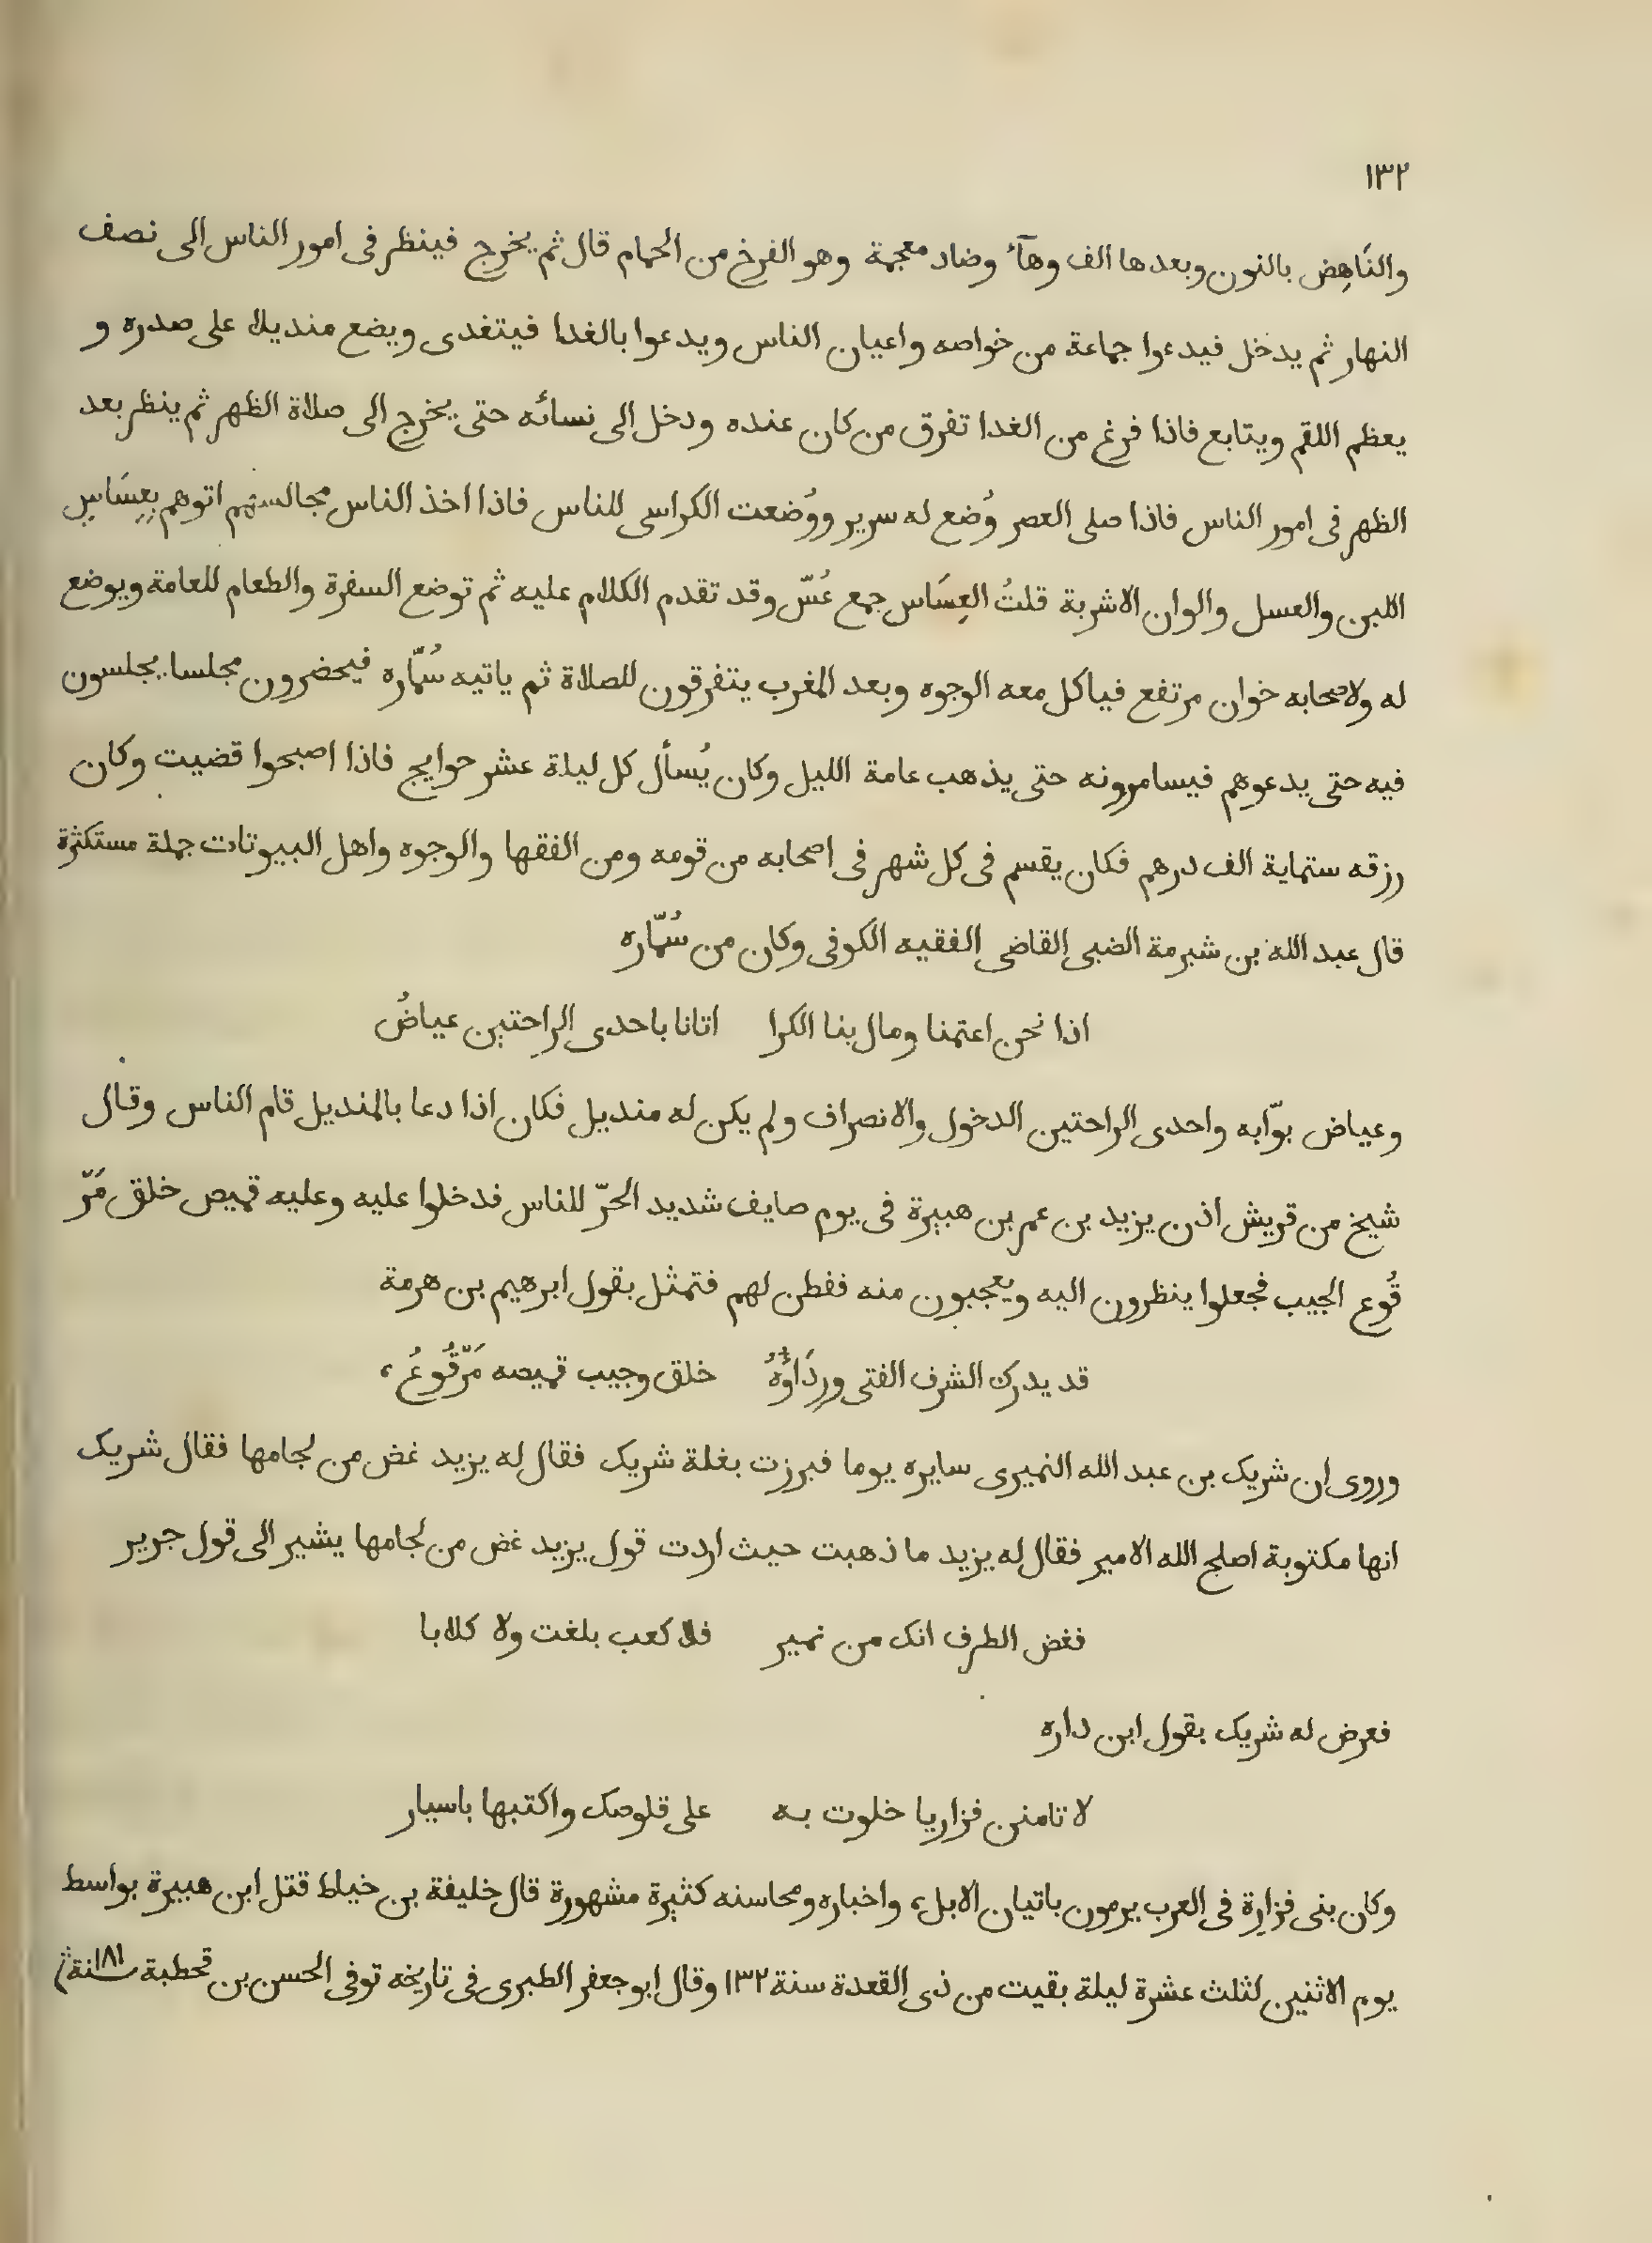 ١٣٢
والنَاهِض بالنون وبعدها الف وهآء وضاد معجمة وهو الفرخ من الحمام قال ثم يخرج فينظر فى امور الناس الى نصف
النهار ثم يدخل فيدعوا جماعة من خواصه واعيان الناس ويدعوا بالغدا فيتغدى ويضع منديلا على صدره و
يعظم اللقم ويتابع فاذا فرغ من الغدا تفرق من كان عنده ودخل الى نسائه حتى يخرج الى صلاة الظهر ثم ينظر بعد
الظهر فى امور الناس فاذا صلى العصر وُضع له سرير ووُضعت الكراسى للناس فاذا اخذ الناس مجالستهم اتوهم بِعِسَاسِ
اللبن والعسل والوان الاشربة قلتُ العِسَاس جمع عُسّ وقد تقدم الكلام عليه ثم توضع السفرة والطعام للعامة ويوضع
له ولاصحابه خوان مرتفع فياكل معه الوجوه وبعد المغرب يتفرقون للصلاة ثم ياتيه سُمّاره فيحضرون مجلسا يجلسون
فيه حتى يدعوهم فيسامرونه حتى يذهب عامة الليل وكان يُسأل كل ليلة عشر حوايج فاذا اصبحوا قضيت وكان
رزقه ستماية الف درهم فكان يقسم فى كل شهر فى اصحابه من قومه ومن الفقها والوجوه واهل البيوتات جملة مستكثرة
قال عبد الله بن شبرمة الضبى القاضى الفقيه الكوفى وكان من سُمّاره
اذا نحن اعتمنا ومال بنا الكرا اتانا باحدى الراحتين عياضُ
وعياض بوّابه واحدى الراحتين الدخول والانصراف ولم يكن له منديل فكان اذا دعا بالمنديل قام الناس وقال
شيخ من قريش اذن يزيد بن عمر بن هبيرة فى يوم صايف شديد الحرّ للناس فدخلوا عليه وعليه قميص خلق مَرّ
قُوع الجيب فجعلوا ينظرون اليه ويعجبون منه ففطن لهم فتمثل بقول ابرهيم بن هرمة
قد يدرك الشرف الفتى ورِدَاؤُهُ خلق وجيب قميصه مَرّقُوعُ،
وروى ان شريك بن عبد الله النميرى سايره يوما فبرزت بغلة شريك فقال له يزيد غض من لجامها فقال شريك
انها مكتوبة اصلح الله الامير فقال له يزيد ما ذهبت حيث اردت قول يزيد غض من لجامها يشير الى قول جرير
فغض الطرف انك من نمير فلا كعب بلغت ولا كلابا
فعرض له شريك بقول ابن داره
لا تامنن فزاريا خلوت به على قلوصك واكتبها باسيار
وكان بنى فزارة فى العرب يرمون باتيان الابل، واخباره ومحاسنه كثيرة مشهورة قال خليفة بن خياط قتل ابن هبيرة بواسط
يوم الاثنين لثلث عشرة ليلة بقيت من ذى القعدة سنة ١٣٢ وقال ابو جعفر الطبرى فى تاريخه توفى الحسن بن قحطبة سنة ١٨١